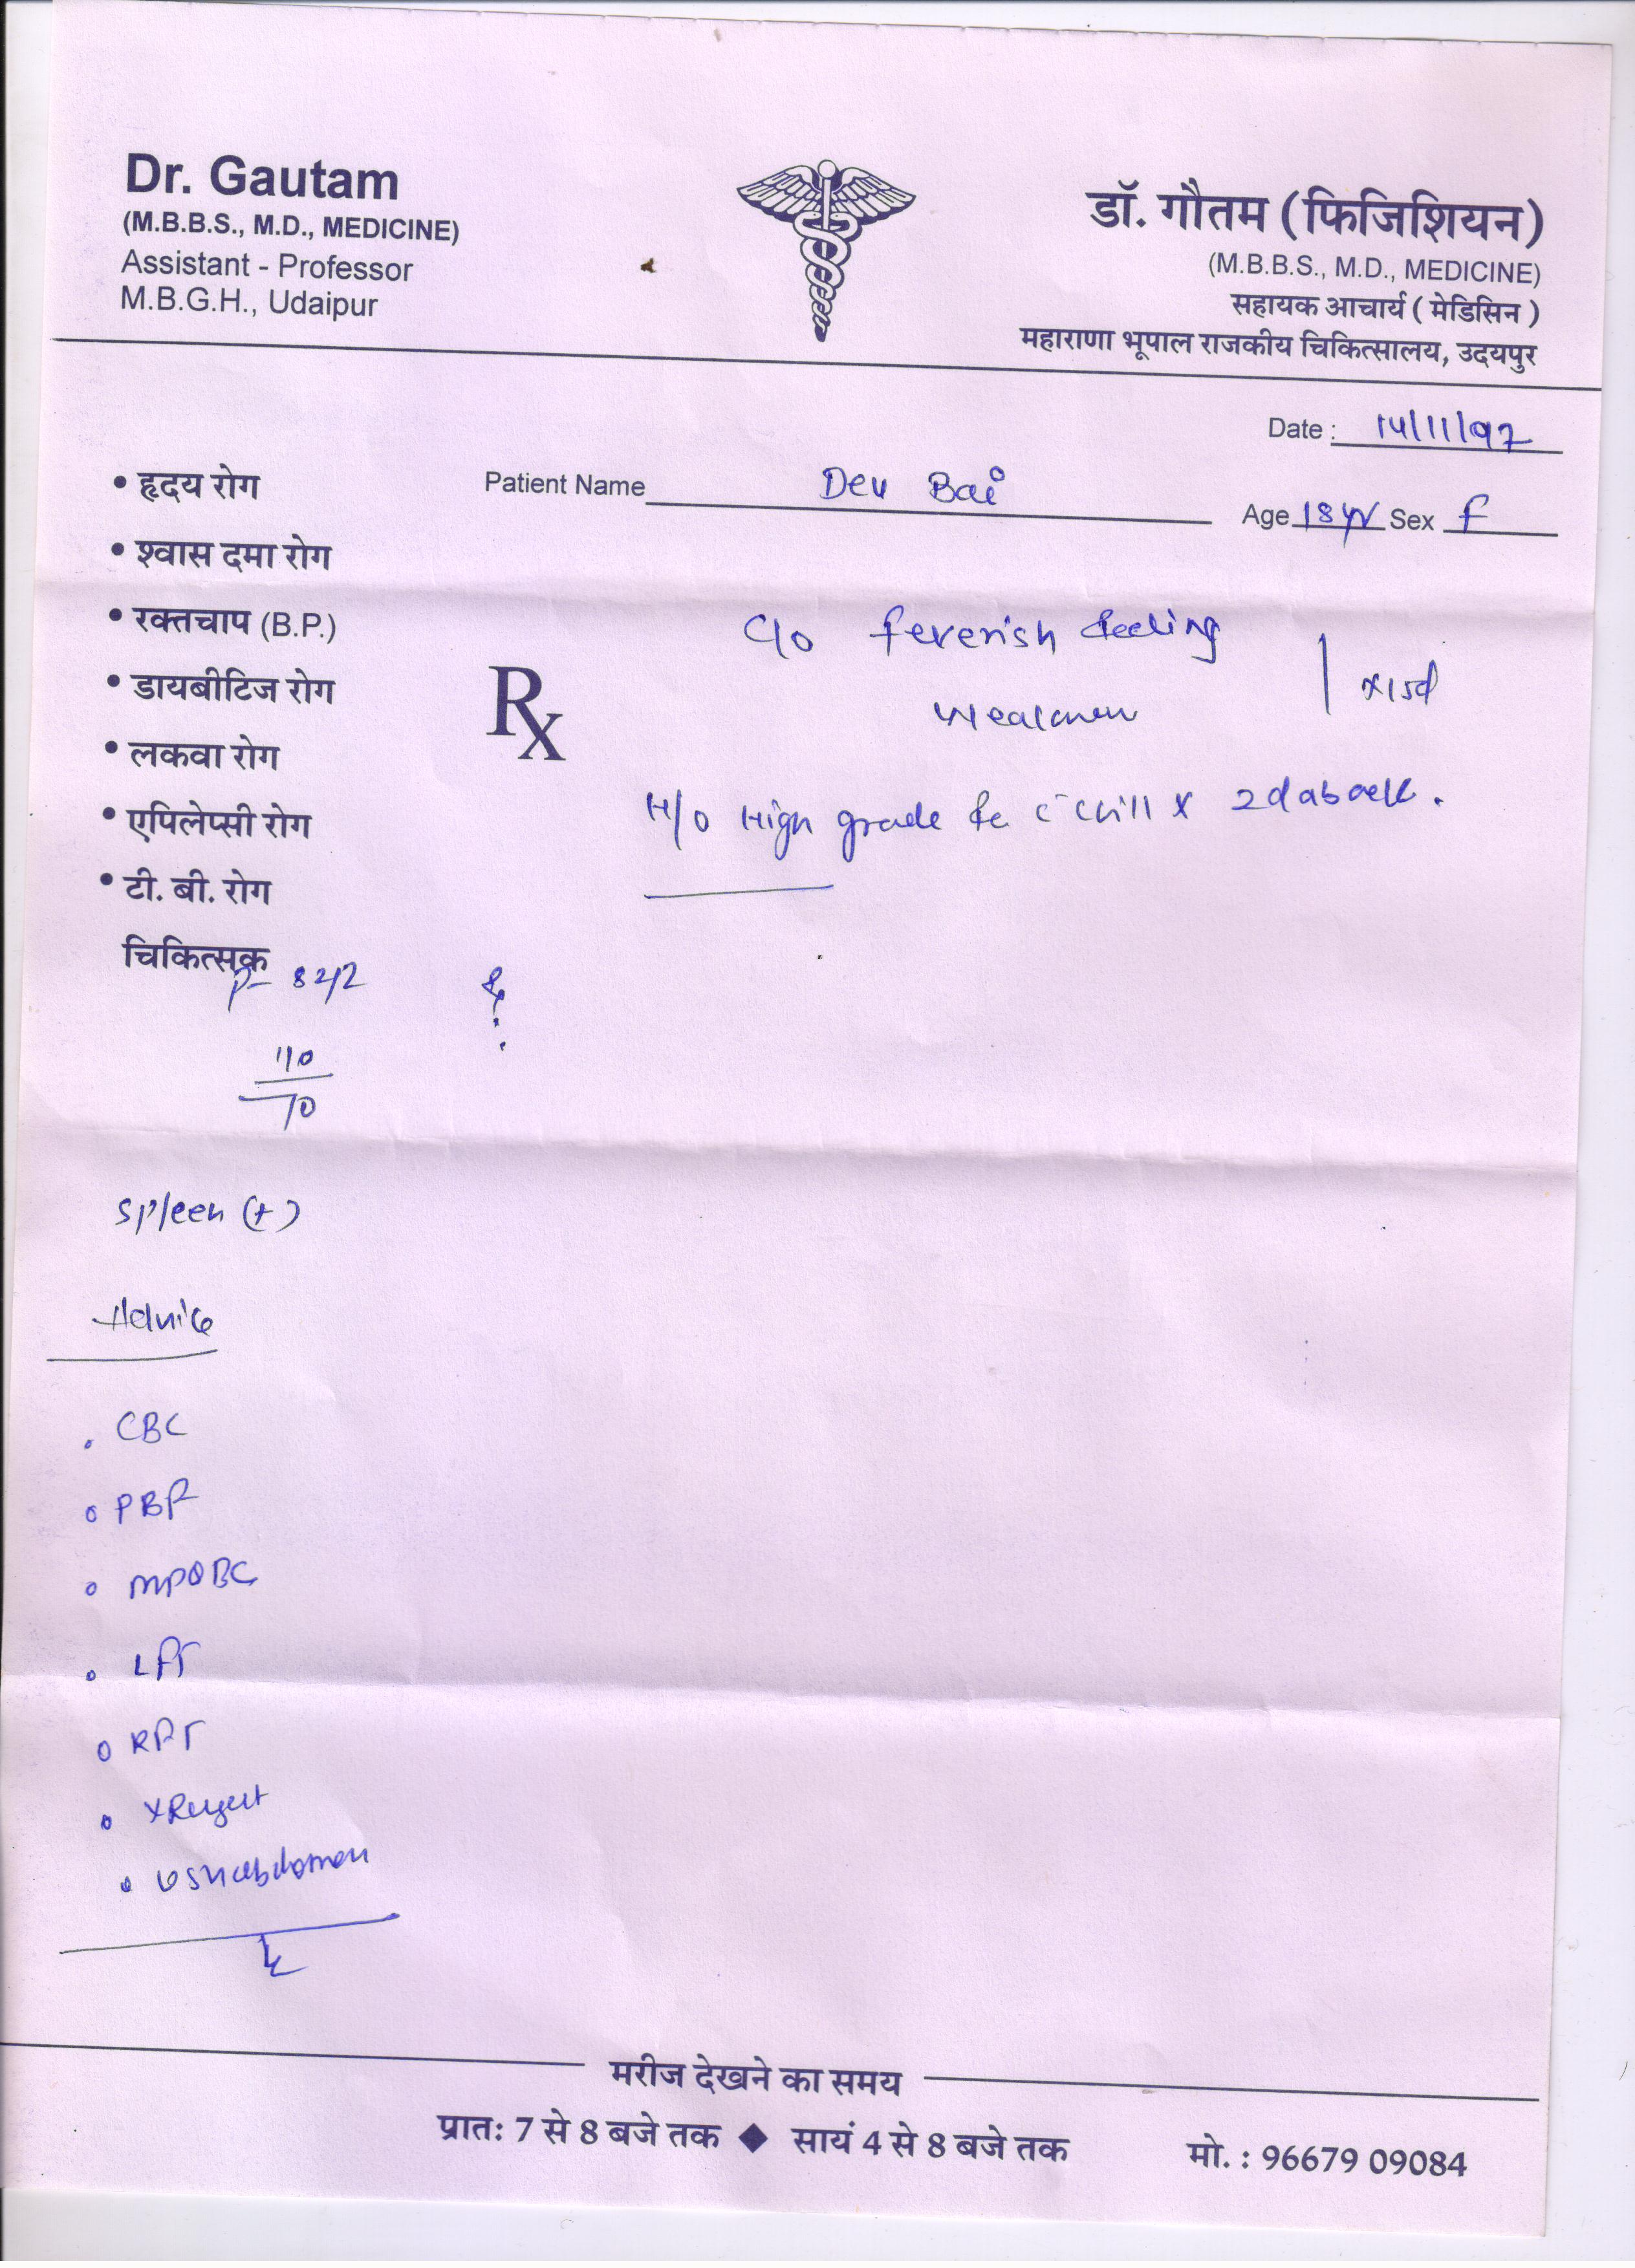 Dr. Gautam
(M.B.B.S., M.D., MEDICINE)
Assistant - Professor
M.B.G.H., Udaipur
डॉ. गौतम (फिजिशियन)
(M.B.B.S., M.D., MEDICINE)
सहायक आचार्य ( मेडिसिन )
महाराणा भूपाल राजकीय चिकित्सालय, उदयपुर
Date : 14/11/97
Patient Name Dev Bai
Age 18 yr Sex F
• हृदय रोग
• श्वास दमा रोग
• रक्तचाप (B.P.)
• डायबीटिज रोग
• लकवा रोग
• एपिलेप्सी रोग
• टी. बी. रोग
चिकित्सक
Rx
C/o feverish feeling
weakness
x 15d
H/o High grade c chill x 2d aback.
P- 82
110
70
Spleen (+)
Advice
CBC
PBF
MPQBC
LFT
RFT
X Ray
USN abdomen
मरीज देखने का समय
प्रातः 7 से 8 बजे तक ◆ सायं 4 से 8 बजे तक
मो. : 96679 09084